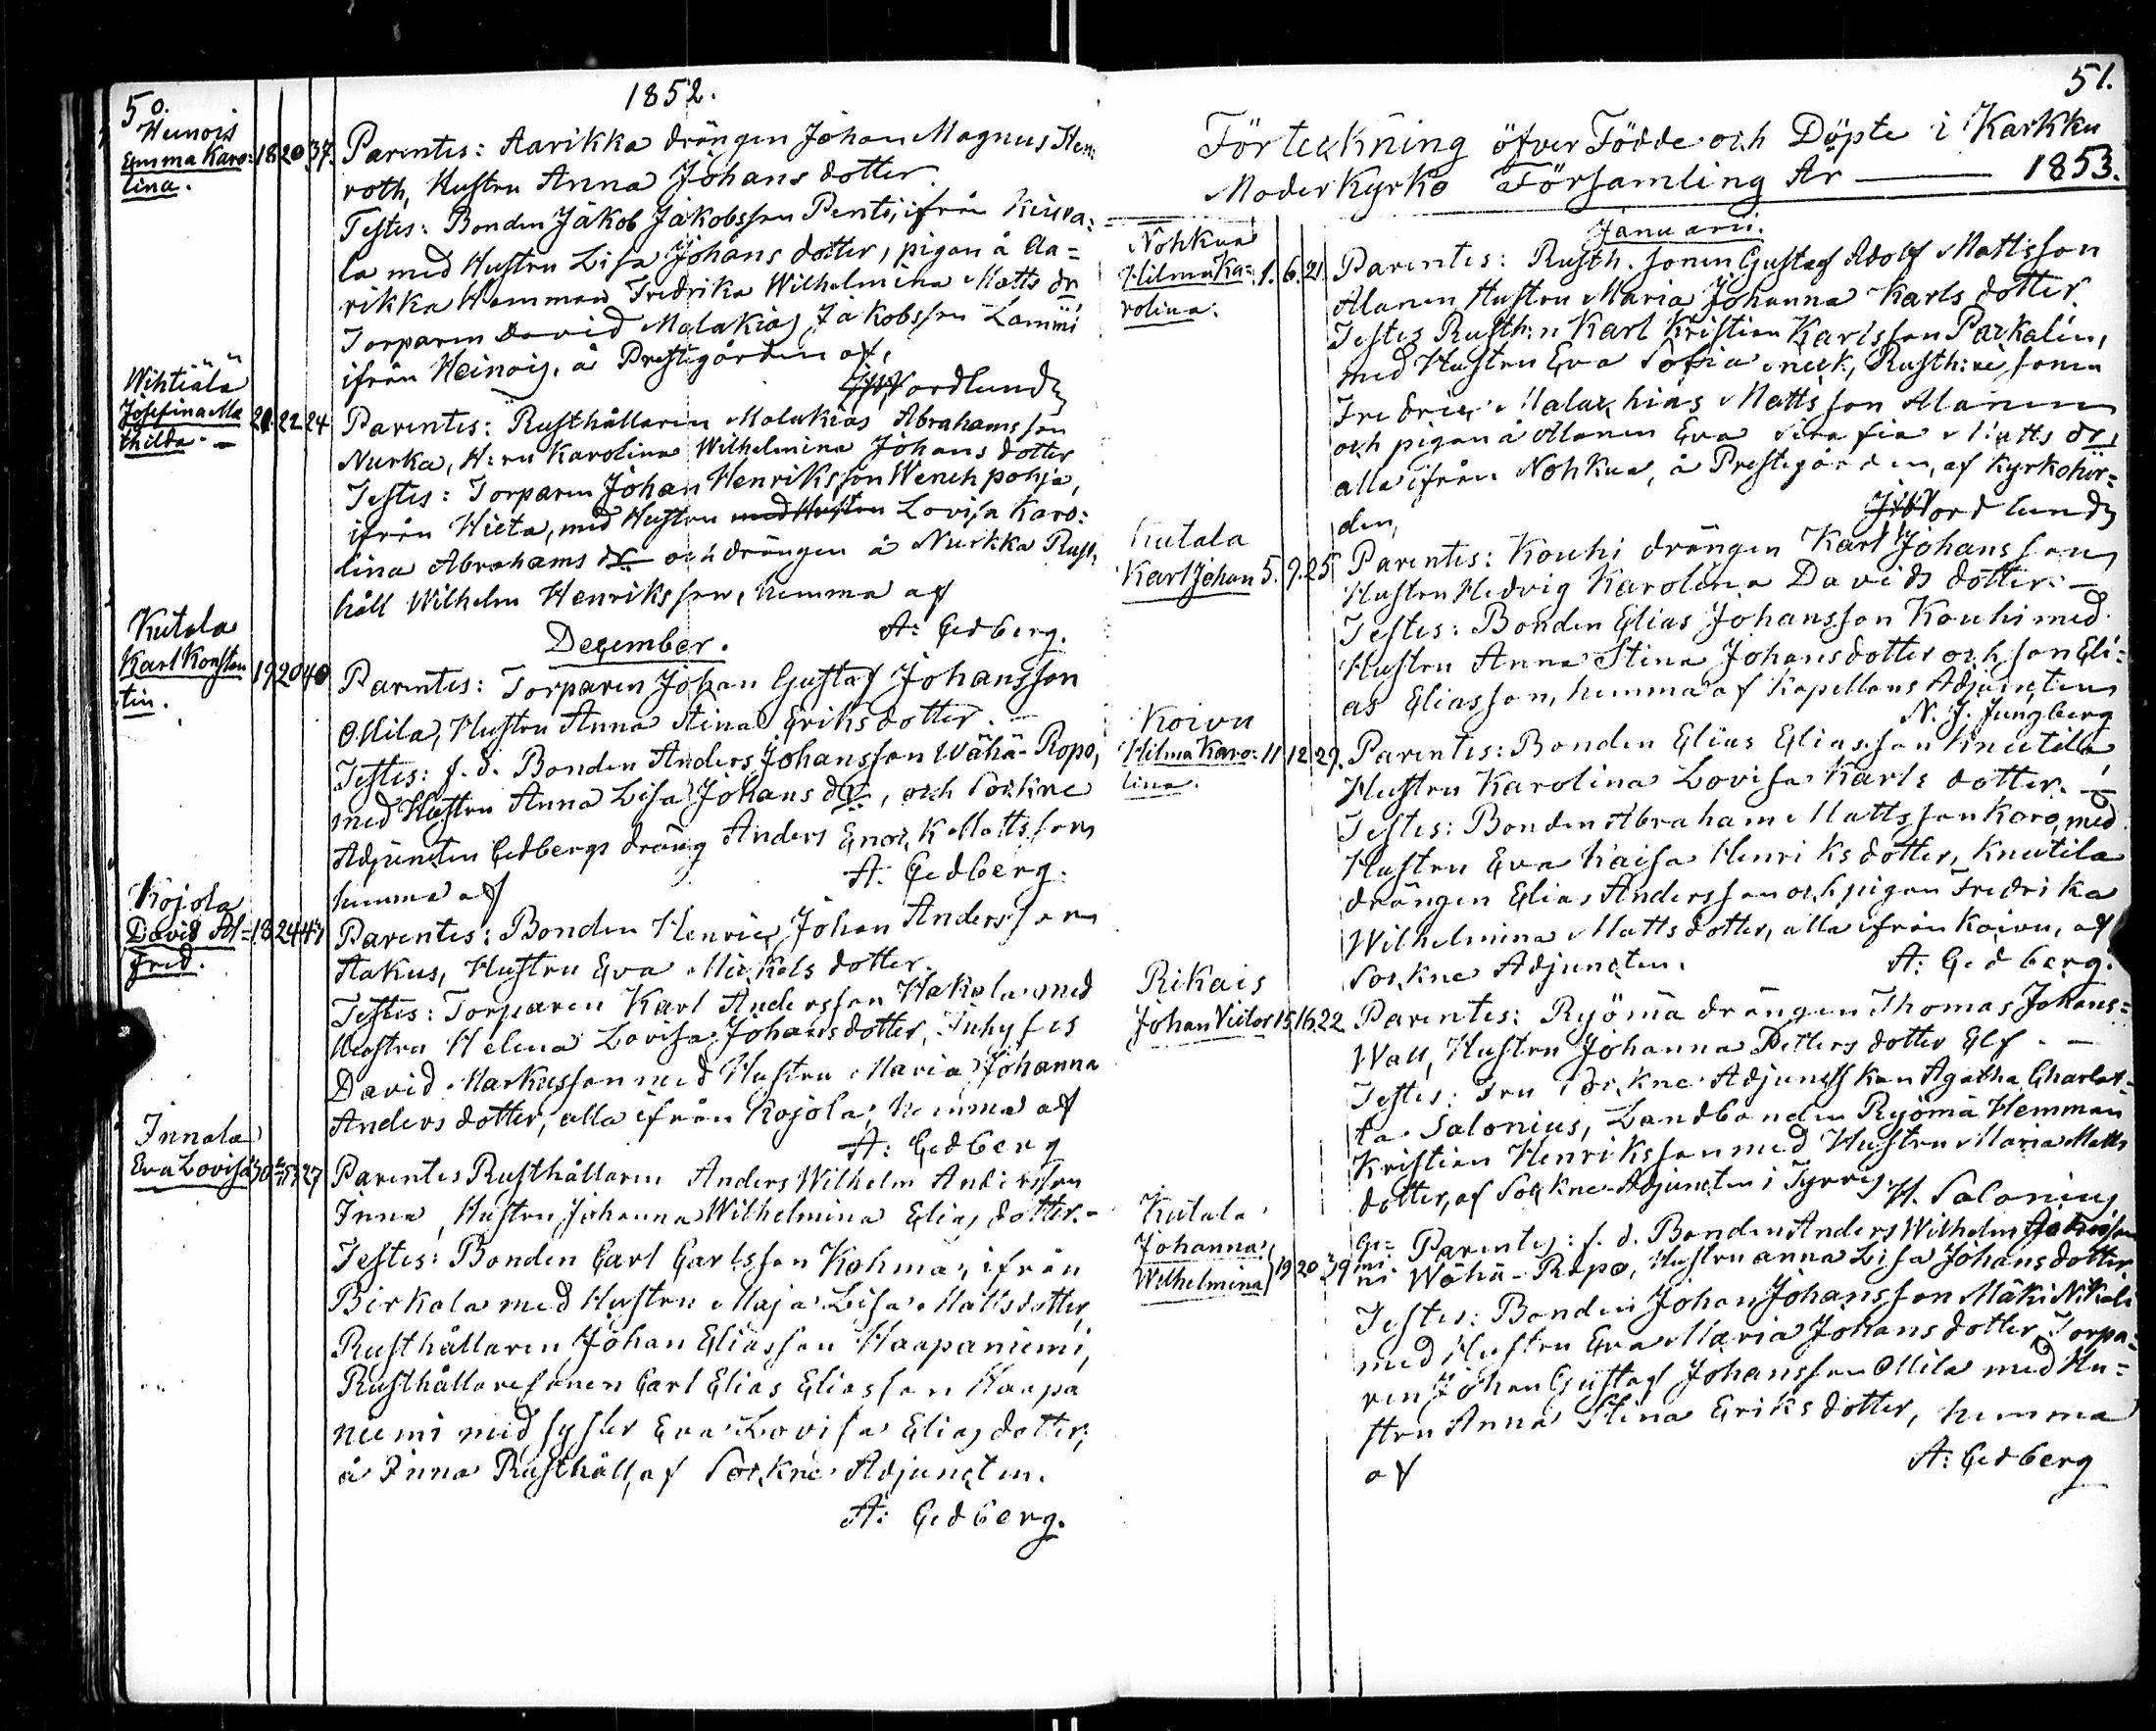 50.
1852.
Heinois
Emma Karo=
lina.
18 20 37.
Parentes: Aarikka drängen Johan Magnus Sten=
roth, Hustru Anna Johans dotter.
Testes: Bonden Jakob Jakobsson Pentti, ifrån Kiura=
la med Hustru Lisa Johans dotter, pigan å Aa=
rikka Hemman Fredrika Wilhelmina Matts dr
Torparen David Malakias Jakobsson Lammi
ifrån Heinois, å Prestgården af,
Nordlund
Wihtiälä
Josefina Ma
thilda. —
21. 22 24
Parentes: Rusthållaren Malakias Abrahamsson
Nurka, H:ru Karolina Wilhelmina Johans dotter
Testes: Torparen Johan Henriksson Wenehpohja,
ifrån Hieta, med Hustru med Hustru Lovisa Karo=
lina Abrahams dr och drängen å Nurkka Rust
håll Wilhelm Henriksson, hemma af
A: Gedberg.
December.
Kutala
Karl Konstan
tin.
19 20 40
Parentes: Torparen Johan Gustaf Johansson
Ollila, Hustru Anna Stina Eriks dotter. —
Testes: f. d. Bonden Anders Johansson Wähä-Ropo,
med Hustru Anna Lisa Johans dr, och Sockne
Adjuncten Gedbergs dräng Anders Enok Mattsson
hemma af
A. Gedberg.
Kojola
David Al=
fred.
18 24 47
Parentes: Bonden Henric Johan Andersson
Aakus, Hustru Eva Mickels dotter.
Testes: Torparen Karl Andersson Hakala med
Hustru Helena Lovisa Johans dotter, Inhyses
David Markusson med Hustru Maria Johanna
Anders dotter, alla ifrån Kojola, hemma af
A: Gedberg
Innala
Eva Lovisa
30 27
Parentes Rusthållaren Anders Wilhelm Andersson
Inna, Hustru Johanna Wilhelmina Elias dotter. —
Testes: Bonden Carl Carlsson Kohma, ifrån
Birkala med Hustru Maja Lisa Mattsdotter,
Rusthållaren Johan Eliasson Haapaniemi,
Rusthållaresonen Carl Elias Eliasson Haapa
niemi med syster Eva Lovisa Elias dotter,
å Inna Rusthåll, af Sockne Adjuncten.
A: Gedberg.
51.
Förteckning öfver Födde och Döpte i Karkku
Moderkyrko Församling År — 1853.
Januarii.
Nohkua
Hilma Ka=
rolina.
1. 6. 21.
Parentes: Rusth. sonen Gustaf Adolf Mattsson
Alanen Hustru Maria Johanna Karls dotter.
Testes Rusth:n Karl Kristian Karlsson Parkalin,
med Hustru Eva Sofia Rusth:re sonen
Fredric Malachias Mattsson Alanen
och pigan å Alanen Eva Serafia Matts dr,
alla ifrån Nohkua, å Prestegården, af Kyrkoher=
den,
Nordlund
Kutala
Karl Johan
5. 9. 25
Parentes: Kouhi drängen Karl Johansson,
Hustru Hedvig Karolina Davids dotter. —
Testes: Bonden Elias Johansson Kouhi med
Hustru Anna Stina Johansdotter och son Eli=
as Eliasson, hemma af Kapellans Adjuncten
N. J. Jungberg
Koivu
Hilma Karo=
lina.
11 12 29.
Parentes: Bonden Elias Eliasson Knuutila,
Hustru Karolina Lovisa Karls dotter. —
Testes: Bonden Abraham Mattsson Karo, med
Hustru Eva Kaisa Henriksdotter, Knuutila
drängen Elias Andersson och pigan Fredrika
Wilhelmina Matts dotter, alla ifrån Koivu, af
Sockne Adjuncten.
A: Gedberg.
Rikais
Johan Victor
15. 16. 22
Parentes: Ryömä drängen Thomas Johans=
Wall, Hustru Johanna Petters dotter Elf. —
Testes: Fru Sockne Adjunctskan Agatha Charlot=
ta Salonius, Landbonden Ryömä Hemman
Kristian Henriksson med Hustru Maria Matts
dotter, af Sockne Adjuncten i Tyrvis
H. Salonius
Kutala
Johanna
Wilhelmina
19 20 39
Ge=
mi
ni
Parentes: f. d. Bonden Anders Wilhelm Johansson
Wähä-Ropo, Hustru anna Lisa Johansdotter
Testes: Bonden Johan Johansson Mäki Nikali
med Hustru Eva Maria Johans dotter, Torpa=
ren Johan Gustaf Johansson Ollila med Hu=
stru Anna Stina Eriks dotter, hemma
af
A: Gedberg